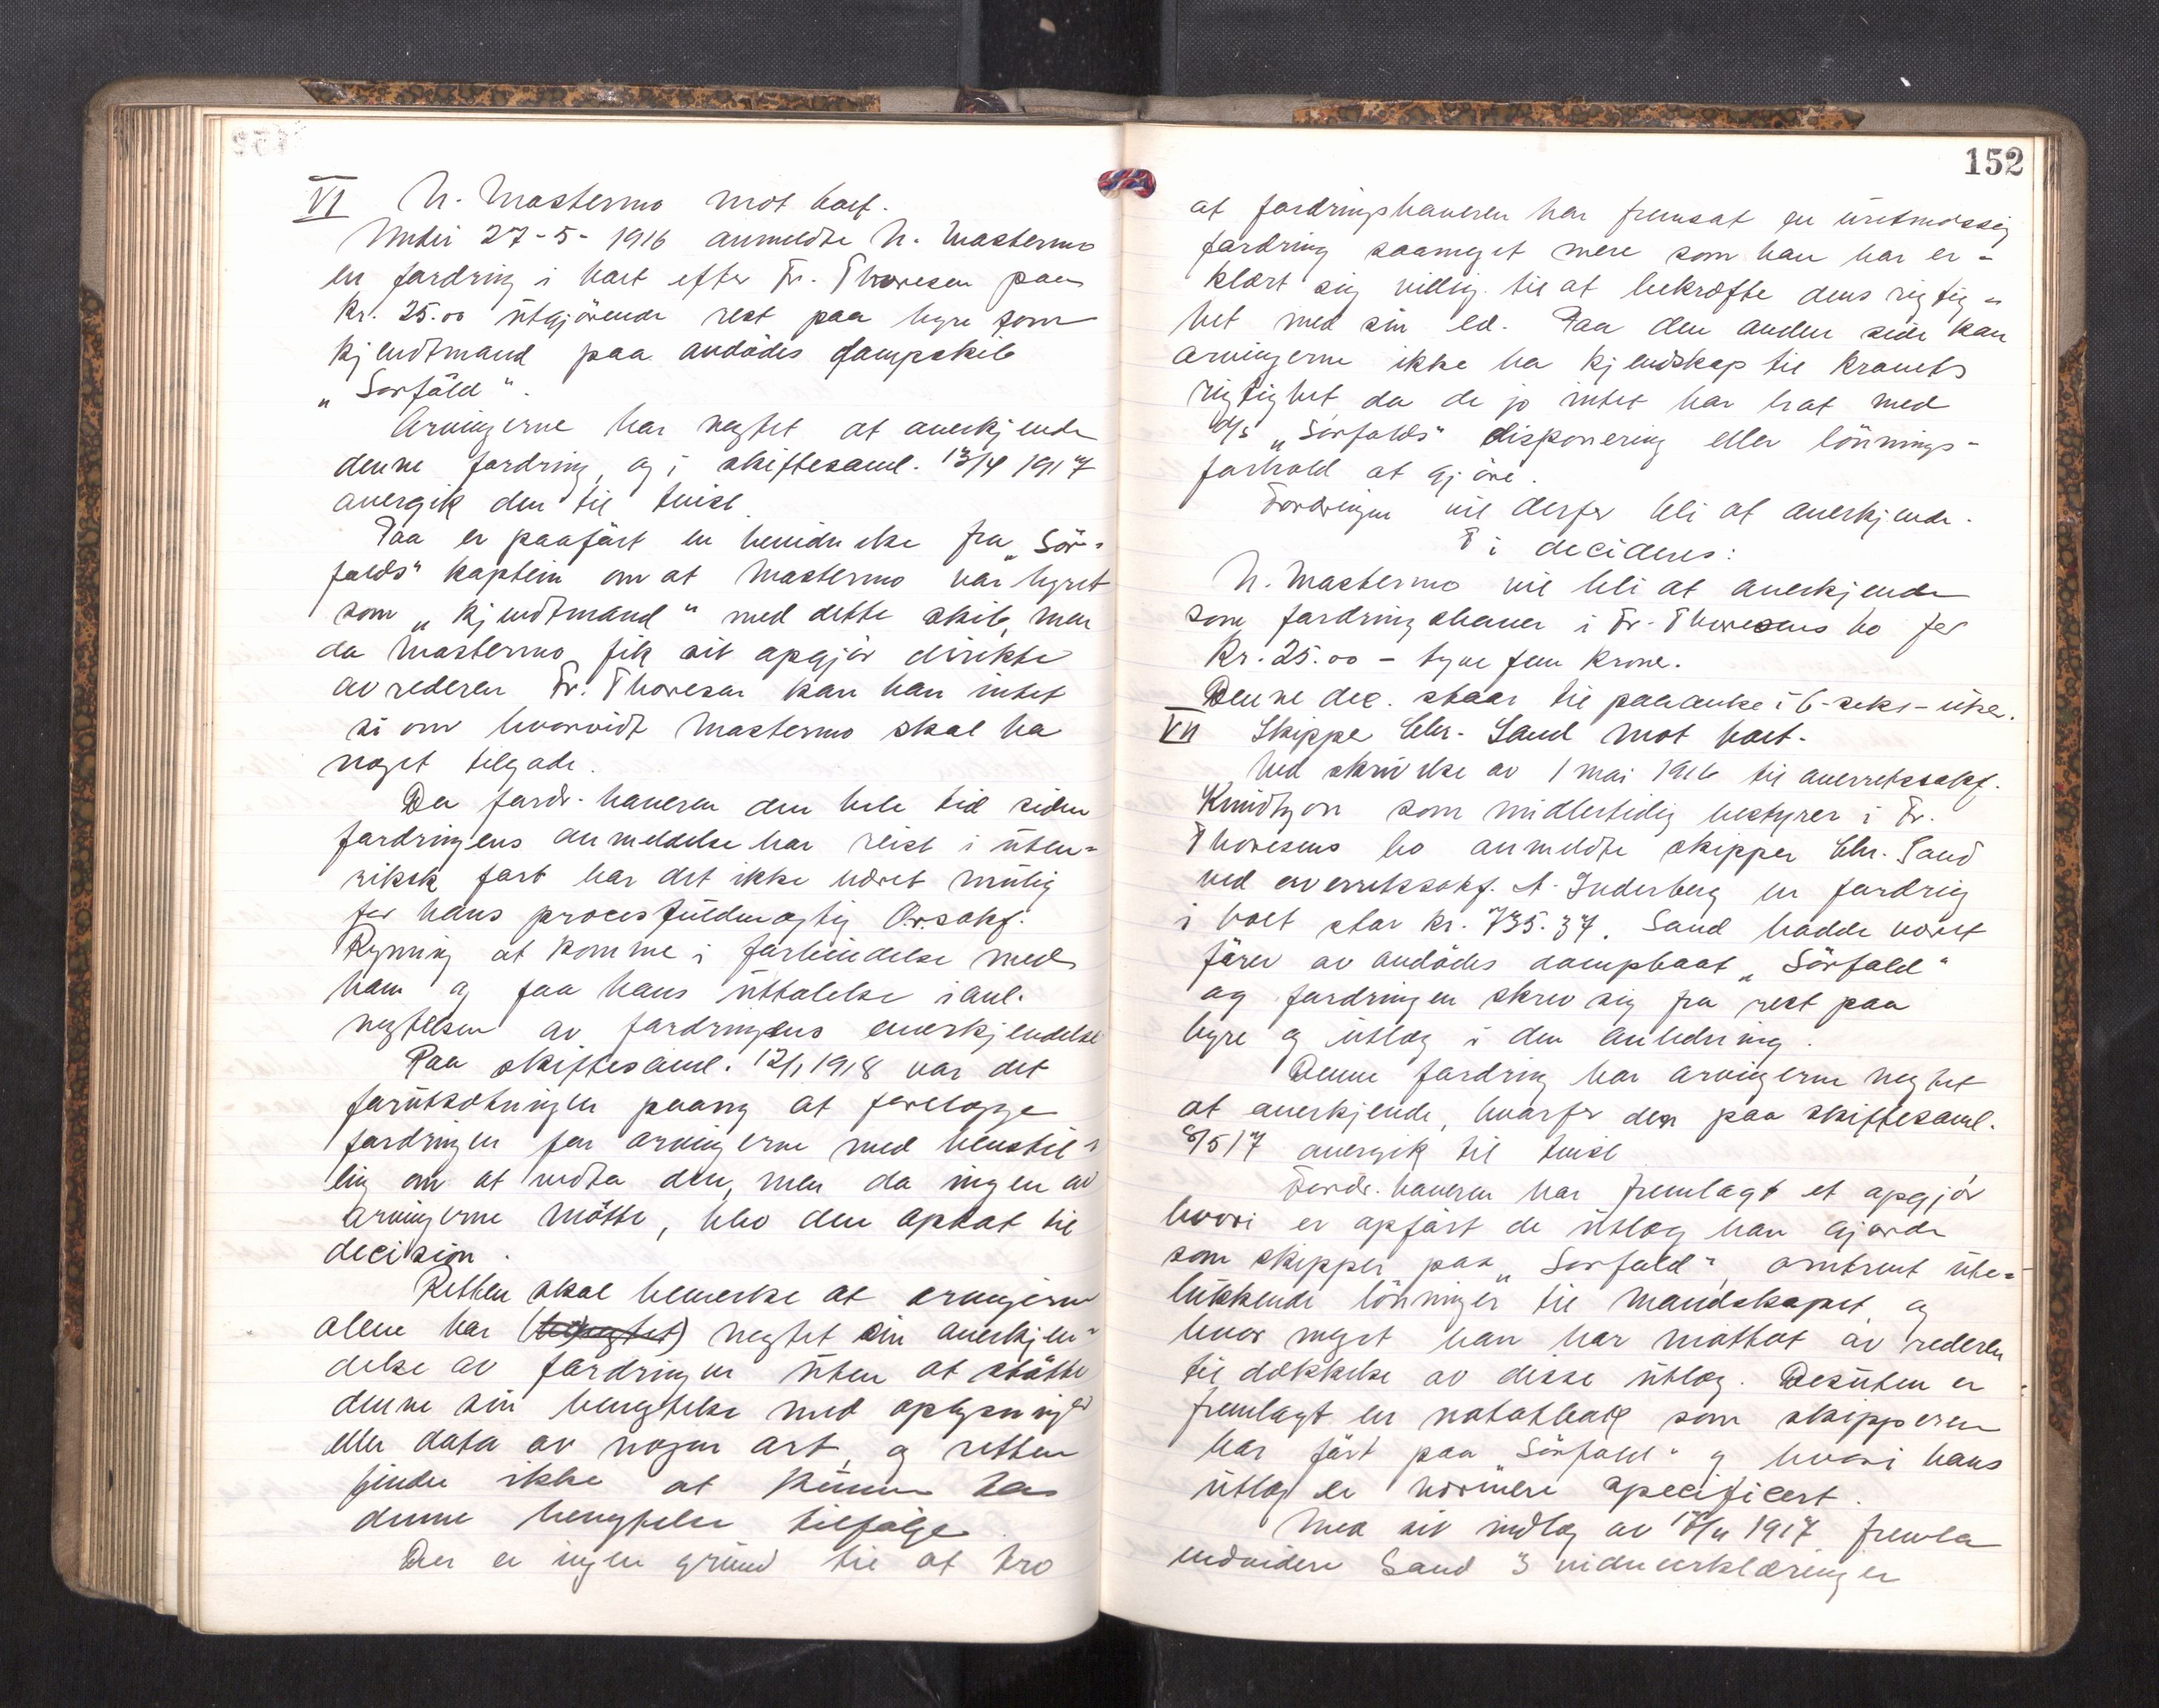 VI N. Mastermo mot boet.
Under 27-5-1916 anmeldte N. Mastermo
en fordring i boet efter Fr. Thoresen paa
Kr. 25.00 utgjörende rest paa hyre som
kjendtmand paa avdödes dampskib
„Sørfold".
Arvingerne har negtet at anerkjende
denne fordring, og i skiftesaml. 13/4 1917
overgik den til tvist.
Paa er paaført en bevidnelse fra „Sør-
folds" kaptein om at Mastermo var hyret
som „kjendtmand" med dette skib, men
da Mastermo fik sit opgjør direkte
av rederen Fr. Thoresen kan han intet
si om hvorvidt Mastermo skal ha
noget tilgode.
Da fordr. haveren den hele tid siden
fordringens anmeldelse har reist i uten-
riksk fart har det ikke været mulig
for hans procesfuldmægtig O.r.sakf.
Ryning at komme i forbindelse med
ham og faa hans uttalelse i anl.
negtelsen av fordringens anerkjendelse
Paa skiftesaml. 12/1 1918 var det
forutsætningen paany at forelægge
fordringen for arvingerne med henstil-
ling om at vedta den, men da ingen av
arvingerne møtte, blev den optat til
decision.
Retten skal bemerke at arvingerne
alene har (benegtet) negtet sin anerkjen-
delse av fordringen uten at støtte
denne sin benegtelse med oplysninger
eller data av nogen art, og retten
finder ikke at kunne ta
denne benegtelse tilfølge.
Der er ingen grund til at tro
152
at fordringshaveren har fremsat en uretmæssig
fordring saameget mere som han har er-
klært sig villig til at bekræfte dens rigtig-
het med sin ed. Paa den anden side kan
arvingerne ikke ha kjendskap til kravets
rigtighet, da de jo intet har hat med
D/S „Sørfolds" disponering eller lönnings-
forhold at gjöre.
Fordringen vil derfor bli at anerkjende.
Ti decideres:
N. Mastermo vil bli at anerkjende
som fordringshaver i Fr. Thoresens bo for
Kr. 25.00 - tyve fem kroner.
Denne dec. staar til paaanke i 6-seks-uker.
VII Skipper Chr. Sand mot boet.
Ved skrivelse av 1 mai 1916 til overretssakf.
Knudtzon som midlertidig bestyrer i Fr.
Thoresens bo anmeldte skipper Chr. Sand
ved overretssakf. A. Inderberg en fordring
i boet stor kr. 735.37. Sand hadde været
fører av avdødes dampbaat „Sørfold"
og fordringen skrev sig fra rest paa
hyre og utlæg i den anledning.
Denne fordring har arvingerne negtet
at anerkjende, hvorfor den paa skiftesaml.
8/5 17 overgik til tvist
Fordr. haveren har fremlagt et opgjør
hvori er opført de utlæg han gjorde
som skipper paa „Sørfold", omtrent ute-
lukkende lønninger til mandskapet, og
hvor meget han har mottat av rederen
til dækkelse av disse utlæg. Desuten er
fremlagt en notatbok som skipperen
har ført paa „Sørfold" og hvori hans
utlæg er nærmere specificert.
Med sit indlæg av 1917 fremla
endvidere Sand 3 vidneerklæringer